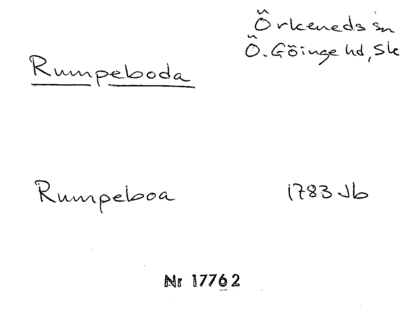 Örkeneds sn
Rumpeboda Ö. Göinge hd, Sk
Rumpeboa 1783 Jb
Nr 17762